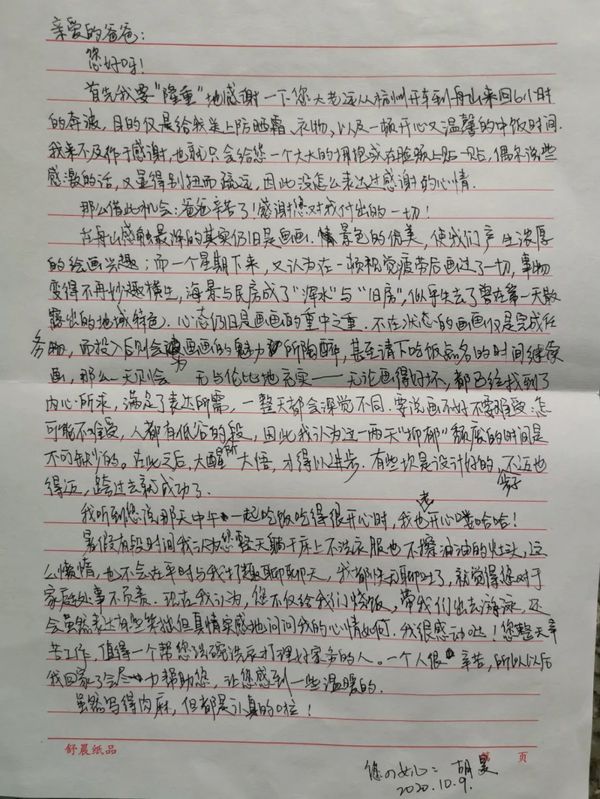 亲爱的爸爸：
您好呀！
首先我要“隆重”地感谢一下您大老远从杭州开车到舟山来回6小时
的奔波，目的仅是给我送上防晒霜、衣物，以及一顿开心又温馨的中饭时间.
我来不及作于感谢，也就只会给您一个大大的拥抱或在脸颊上贴一贴，偶尔说些
感激的话，又显得别扭而疏远，因此没怎么表达过感谢的心情.
那么借此机会：爸爸辛苦了！感谢您对我付出的一切！
在舟山感触最深的其实仍旧是画画. 情景色的优美，使我们产生浓厚
的绘画兴趣；而一个星期下来，又认为在一顿视觉疲劳后画过了一切，事物
变得不再妙趣横生，海景与民房成了“浑水”与“旧房”，似乎失去了曾在第一天散
露出的地域特色. 心态仍旧是画画的重中之重. 不在状态的画画仅是完成任
务，而投入后则会为画画的魅力所陶醉，甚至请下吃饭点名的时间继续
画，那么一天则会无与伦比地充实——无论画得好坏，都已经找到了
内心所求，满足了表达所需，一整天都会深觉不同. 要说画不好不要难受：怎
可能不难受，人都有低谷的段，因此我认为这一两天“抑郁”颓废的时间是
不可缺少的。在此之后，大醒大悟，才得以进步. 有些坎是设计好的，不迈也
得迈，跨过去就成功了.
我听到您说那天中午一起吃饭吃得很开心时，我也老开心喽哈哈！
暑假有段时间我汄为您整天躺于床上不洗衣服也不擦油油的灶头，这
么懒惰，也不会在平时与我打趣聊聊天，我都快无聊吐了，就觉得您对于
家庭处事不负责. 现在我认为，您不仅给我们烧饭，带我们出去游泳，还
会虽然表达的些笨拙但真情实感地问问我的心情如何，我很感动哒！您整天辛
苦工作，值得一个帮您洗碗洗衣打理好家务的人。一个人很辛苦，所以以后
我回家了会尽力帮助您，让您感到一些温暖的.
虽然写得肉麻，但都是认真的啦！
舒晨纸品
第 页
您の女儿：胡昊
2020.10.9.